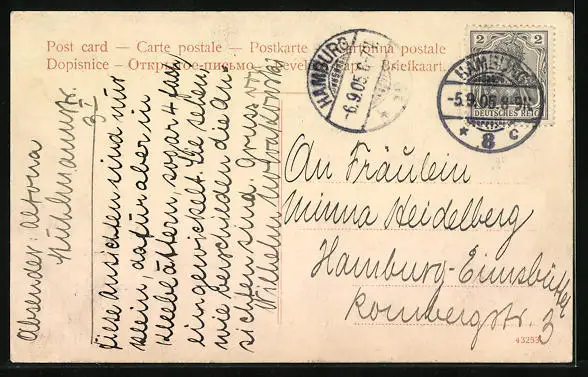 Post card – Carte postale – Postkarte – Cartolina postale
Dopisnice – Открытое письмо – Levelező-Lap – Briefkaart.
HAMBURG
-6.9.05.
2 2
DEUTSCHES REICH
HAMBURG
-5.9.05.8-9N.
* 8 c
An Fräulein
Minna Heidelberg
Hamburg-Eimsbüttel
Rombergstr. 3
43253
Absender: Altona
Mühlmannstr.
Diese Ansichten sind nur
klein, dafür aber in
Kleeblättern, sogar 4 fach
eingewickelt. Sie sehen,
wie verschieden die An-
sichten sind. Gruss von
Wilhelm